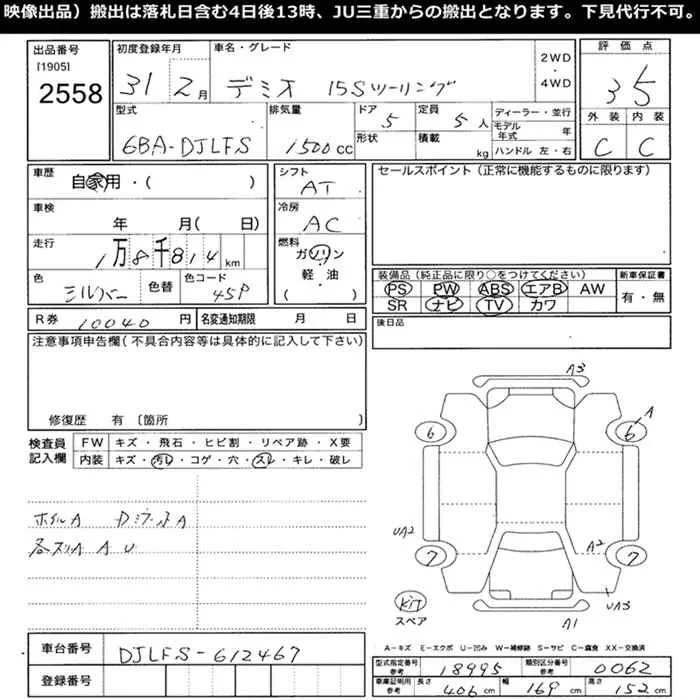 映像出品）搬出は落札日含む4日後13時、JU三重からの搬出となります。下見代行不可。
出品番号 [1905] 2558
初度登録年月 31 2月
車名・グレード デミオ 15Sツーリング
2WD ・ 4WD
評価点 3 5
外装 C 内装 C
型式 6BA-DJLFS
排気量 1500 cc
ドア 5
形状
定員 5人
積載 kg
ディーラー・並行
モデル年式 年
ハンドル 左・右
車歴 自家用・( )
車検 年 月( 日)
走行 1万8千814 km
色 シルバー 色替 色コード 45P
シフト AT
冷房 AC
燃料 ガソリン 軽・油 ( )
セールスポイント（正常に機能するものに限ります）
装備品（純正品に限り○をつけてください）
PS PW ABS エアB AW
SR ナビ TV カワ
新車保証書 有・無
R券 10040 円 名変通知期限 月 日
後日品
注意事項申告欄(不具合内容等は具体的に記入して下さい)
修復歴 有〔箇所 〕
検査員記入欄
FW キズ・飛石・ヒビ割・リペア跡・X要
内装 キズ・汚レ・コゲ・穴・スレ・キレ・破レ
ホイルA
各スリA A U
A3
A
6 6
UA2
A2
7 7
UA3
A1
Kit スペア
A−キズ E−エクボ U−凹み W−補修跡 S−サビ C−腐食 XX−交換済
車台番号 DJLFS-612467
登録番号
型式指定番号 参考 18995 類別区分番号 参考 0062
車庫証明用 参考 長さ 406 cm 幅 169 cm 高さ 152 cm